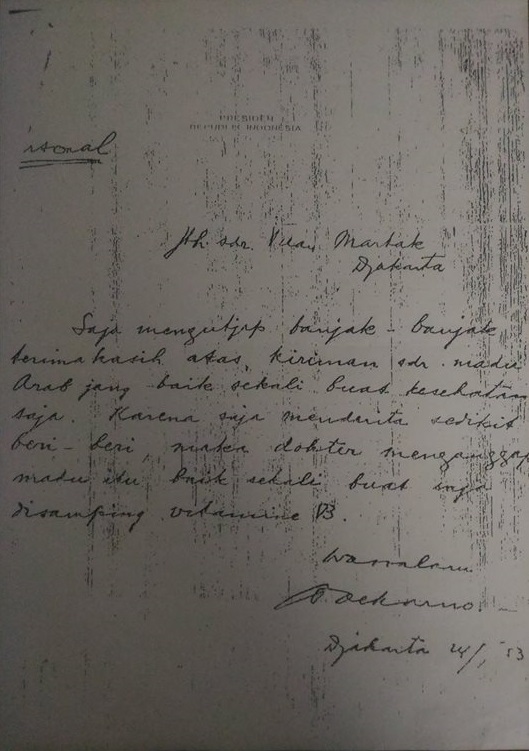 PRESIDEN
REPUBLIK INDONESIA
rsonal
Jth. sdr. Tuan Martak
Djakarta
Saja mengutjap banjak-banjak
terima kasih atas kiriman sdr. madu
Arab jang baik sekali buat kesehatan
saja. Karena saja menderita sedikit
beri-beri, maka dokter menganggap
madu itu baik sekali buat saja
disamping vitamine B.
Wassalam
Soekarno.
Djakarta 24/1 '53